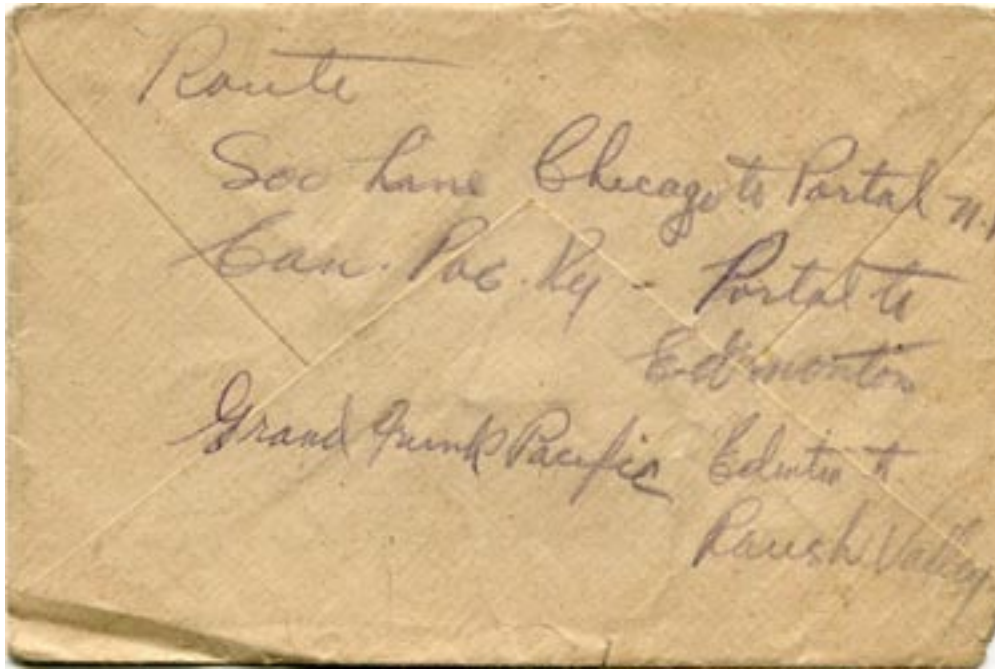 Route
Soo Line Chicago to Portal N.
Can. Pac. Ry - Portal to
Edmonton
Grand Trunk Pacific to
Raush Valley